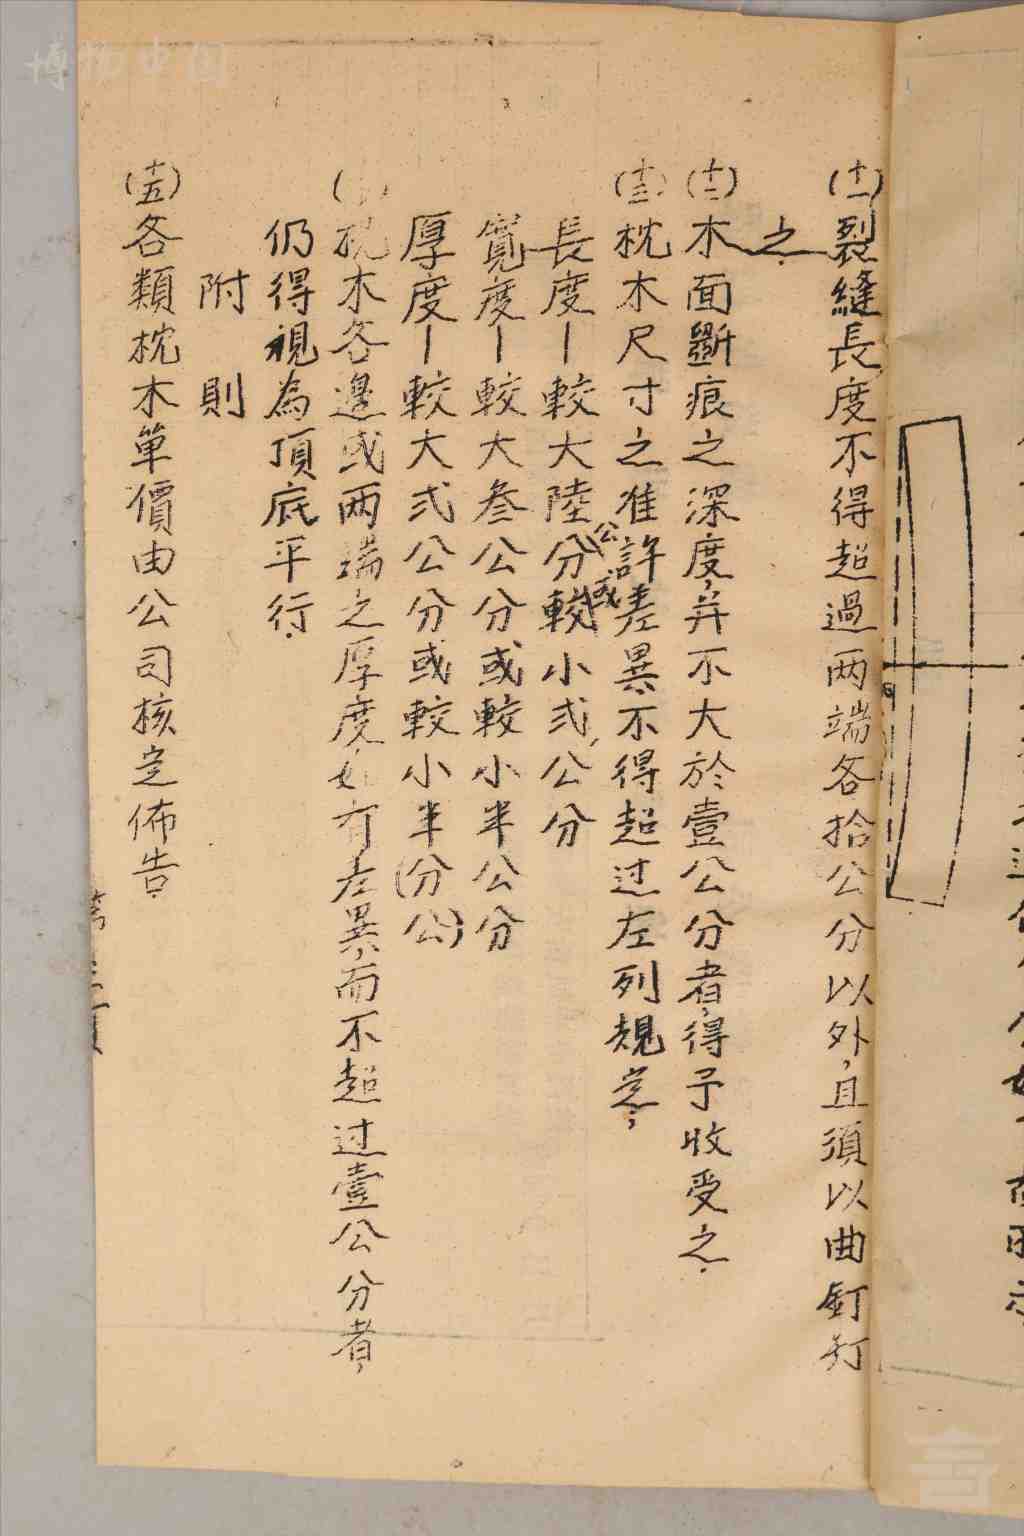 (十一)裂縫長度不得超過两端各拾公分以外,且須以曲釘釘
之.
(十二)木面斷痕之深度,并不大於壹公分者,得予收受之.
(十三)枕木尺寸之准許差異,不得超过左列規定;
長度—較大陸公分或較小弍公分
寬度—較大叁公分或較小半公分
厚度—較大弍公分或較小半(分公)
枕木各邊或两端之厚度,如有差異,而不超过壹公分者,
仍得視為頂底平行.
附則
(十五)各類枕木單價由公司核定佈告.
博物中国